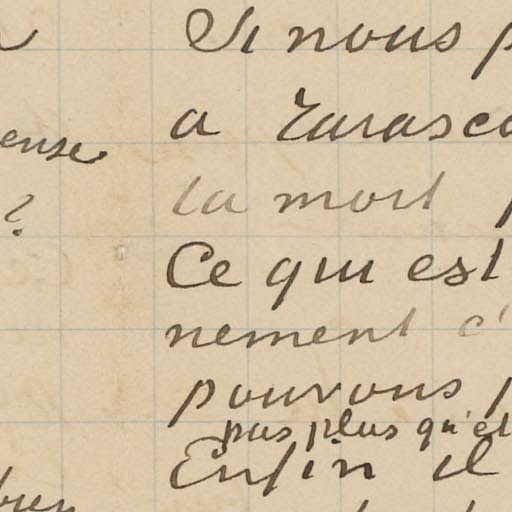 Si nous p
a Tarasco
ense
la mort p
?
Ce qui est
nement c'
pouvons p
pas plus qu'et
Enfin il